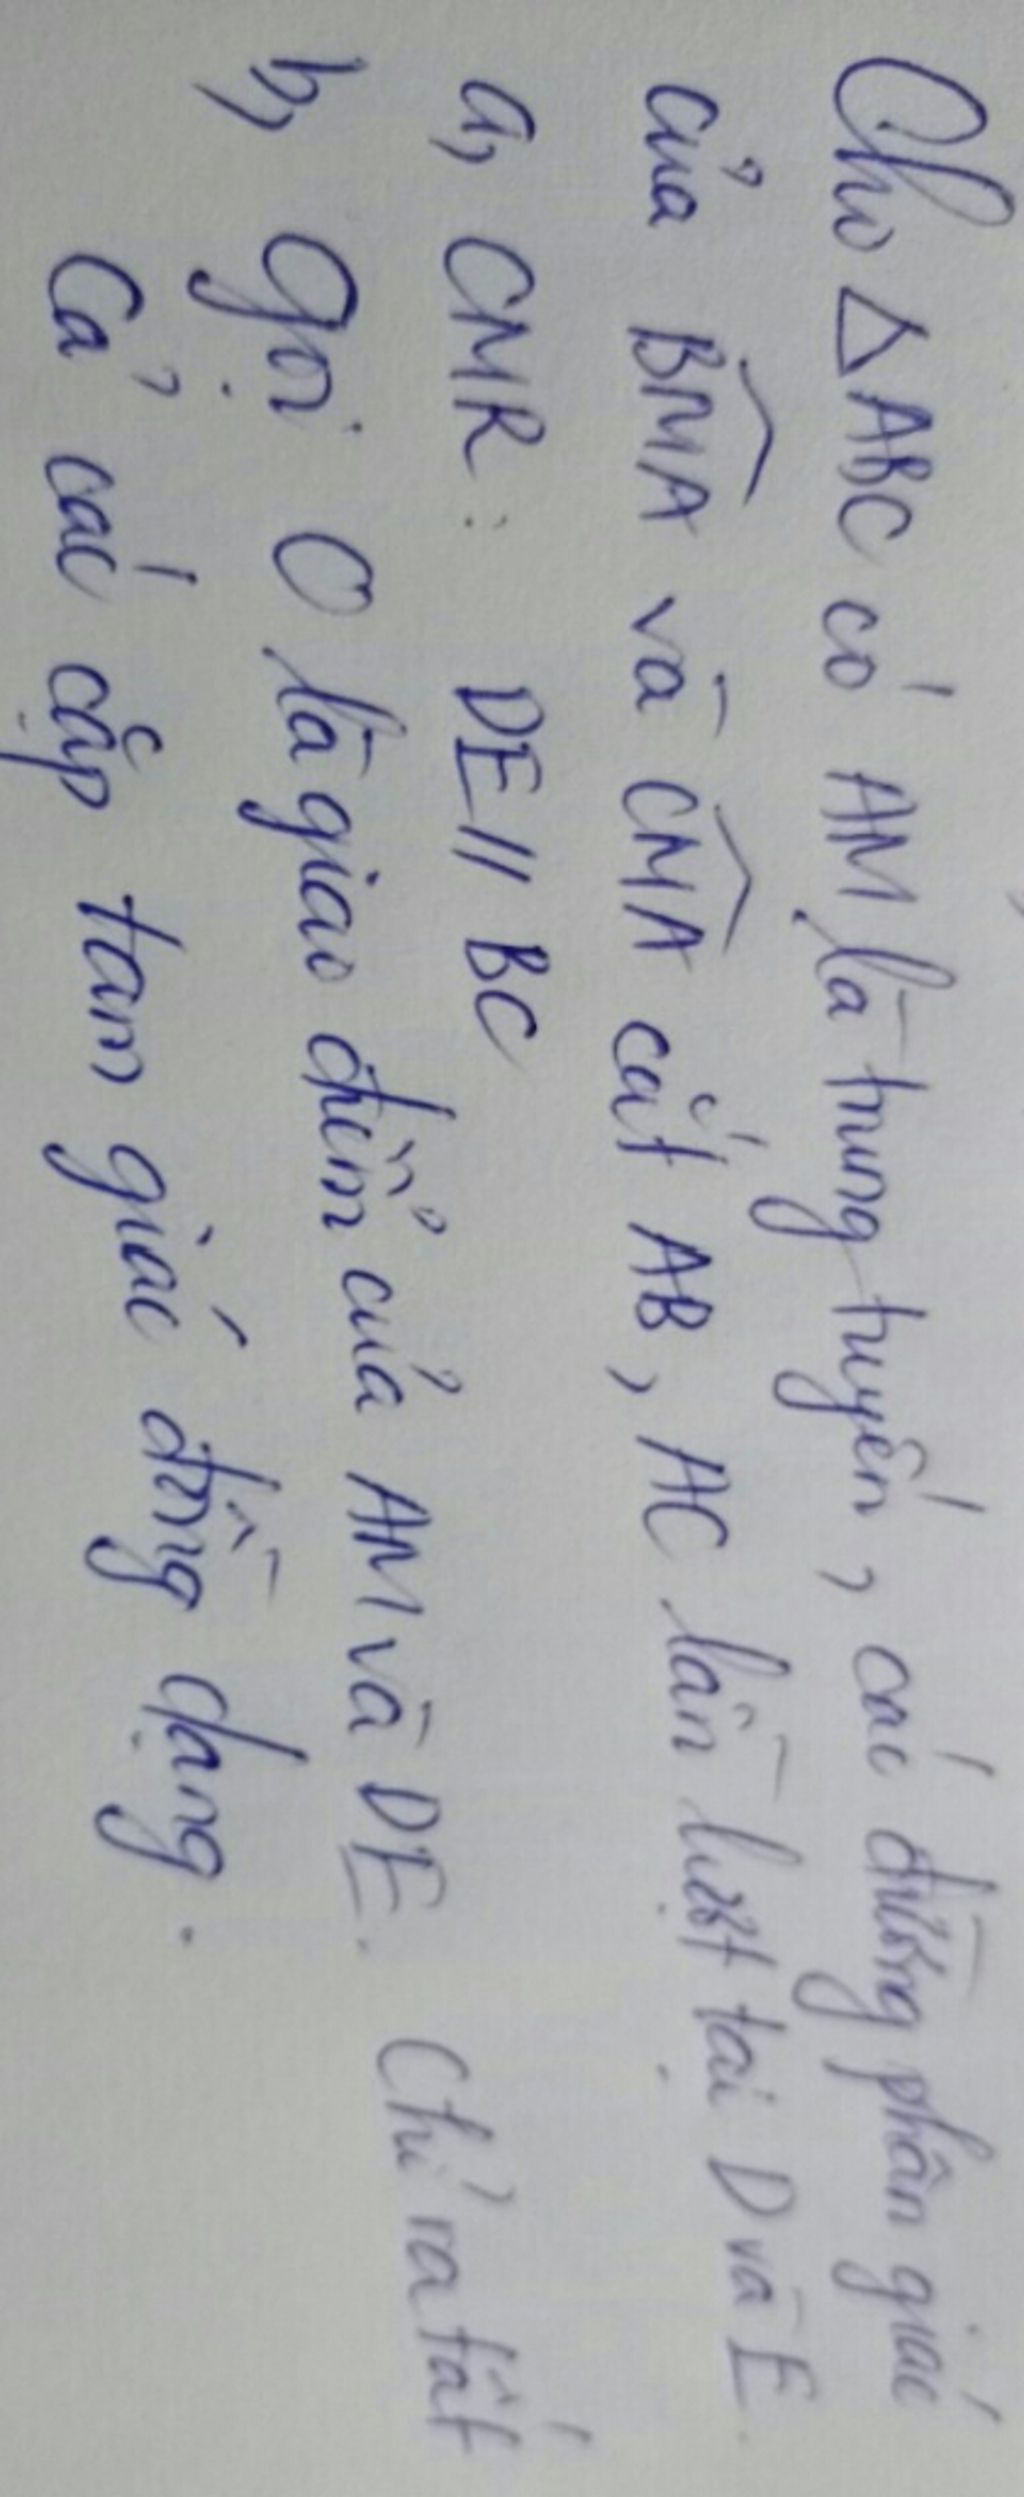 Cho △ABC có AM là trung tuyến, các đường phân giác
của $\widehat{BMA}$ và $\widehat{CMA}$ cắt AB, AC lần lượt tại D và E.
a, CMR: DE // BC
b, Gọi O là giao điểm của AM và DE. Chỉ ra tất
cả các cặp tam giác đồng dạng.